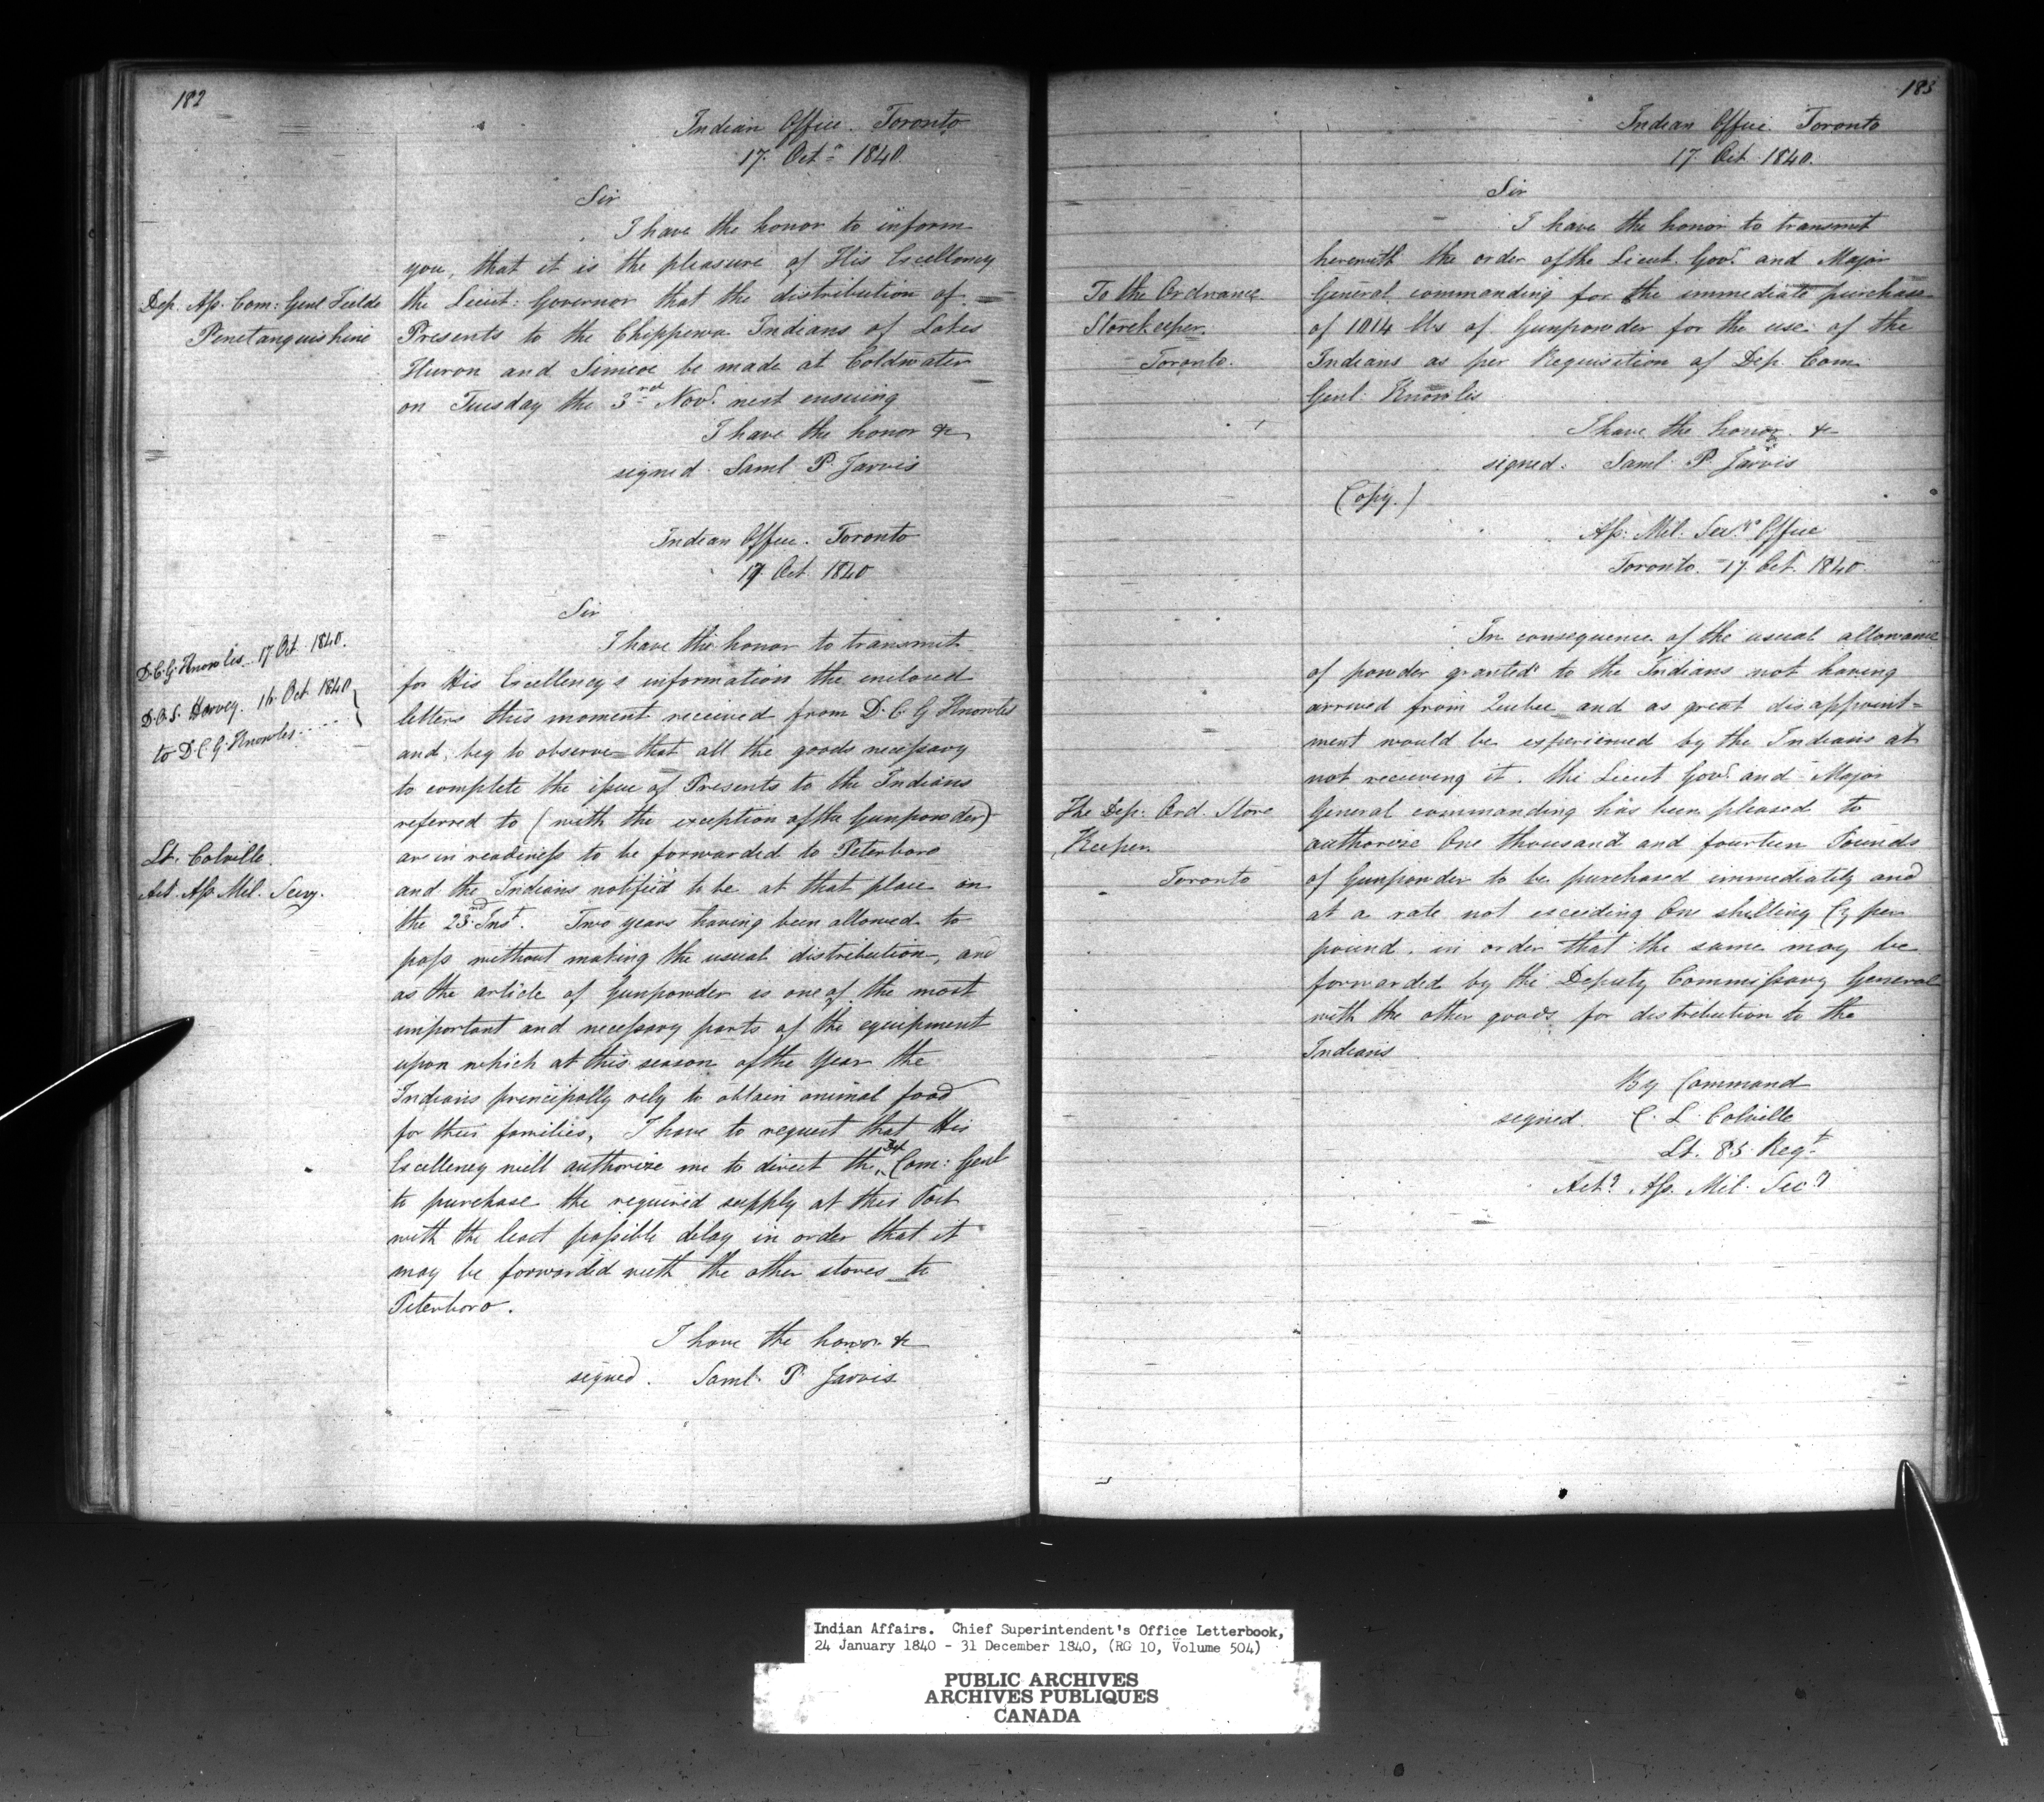 182
Indian Office. Toronto
17. Octr 1840.
Sir
I have the honor to inform
you, that it is the pleasure of His Excellency
Dep. Ass. Com: Genl Fielde
Penetanguishine
the Lieut: Governor that the distribution of
Presents to the Chippewa Indians of Lakes
Huron and Simcoe be made at Coldwater
on Tuesday the 3rd Novr. next ensuing
I have the honor &c
signed Saml P. Jarvis
Indian Office. Toronto
17 Oct 1840
Sir
D.C.G. Knowles 17 Oct 1840.
D.O.S. Harvey. 16 Oct 1840
to D.C.G. Knowles
I have the honor to transmit
for His Excellency's information the enclosed
letters this moment received from D. C. G Knowles
and, beg to observe that all the goods necessary
to complete the issue of Presents to the Indians
referred to (with the exception of the Gunpowder)
Lt. Colville.
Act. Ass Mil. Secy.
are in readiness to be forwarded to Peterboro
and the Indians notified to be at that place on
the 23rd Inst. Two years having been allowed to
pass without making the usual distribution, and
as the article of Gunpowder is one of the most
important and necessary parts of the equipment
upon which at this season of the year the
Indians principally rely to obtain animal food
for their families, I have to request that His
Excellency will authorize me to direct the Dep Com: Genl
to purchase the required supply at this Post
with the least possible delay in order that it
may be forwarded with the other stores to
Peterboro.
I have the honor &c
signed. Saml. P. Jarvis
183
Indian Office. Toronto
17. Oct 1840.
Sir
I have the honor to transmit
herewith the order of the Lieut. Govr. and Major
To the Ordnance
Storekeeper.
Toronto.
General commanding for the immediate purchase
of 1014 lbs of Gunpowder for the use of the
Indians as per Requisition of Dep. Com
Genl: Knowles
I have the honor &c
signed. Saml. P. Jarvis
(Copy.)
Ass. Mil. Secy's Office
Toronto. 17. Oct. 1840.
In consequence of the usual allowance
of powder granted to the Indians not having
arrived from Quebec and as great disappoint=
ment would be experienced by the Indians at
not receiving it. the Lieut Govr. and Major
The Dep: Ord. Store
Keeper
Toronto
General commanding has been pleased to
authorize One thousand and fourteen Pounds
of Gunpowder to be purchased immediately and
at a rate not exceeding One shilling Cy per
pound. in order that the same may be
forwarded by the Deputy Commissary General
with the other goods for distribution to the
Indians
By Command
signed. C. L. Colville
Lt. 85 Regt
Actg Ass. Mil. Secy
Indian Affairs. Chief Superintendent's Office Letterbook,
24 January 1840 - 31 December 1840, (RG 10, Volume 504)
PUBLIC ARCHIVES
ARCHIVES PUBLIQUES
CANADA